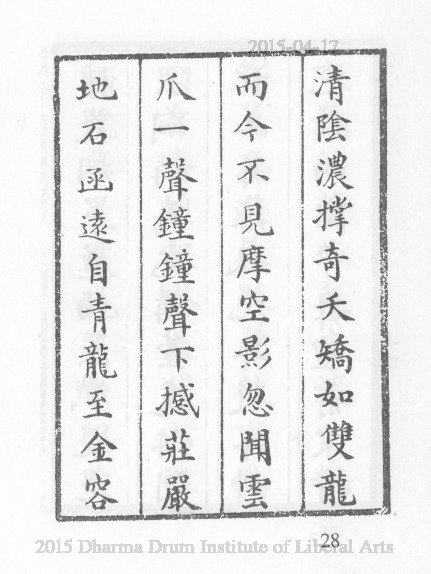 2015-04-17
清陰濃撑奇夭矯如雙龍
而今不見摩空影忽聞雲
爪一聲鐘鐘聲下撼莊嚴
地石函遠自青龍至金容
28
2015 Dharma Drum Institute of Liberal Arts